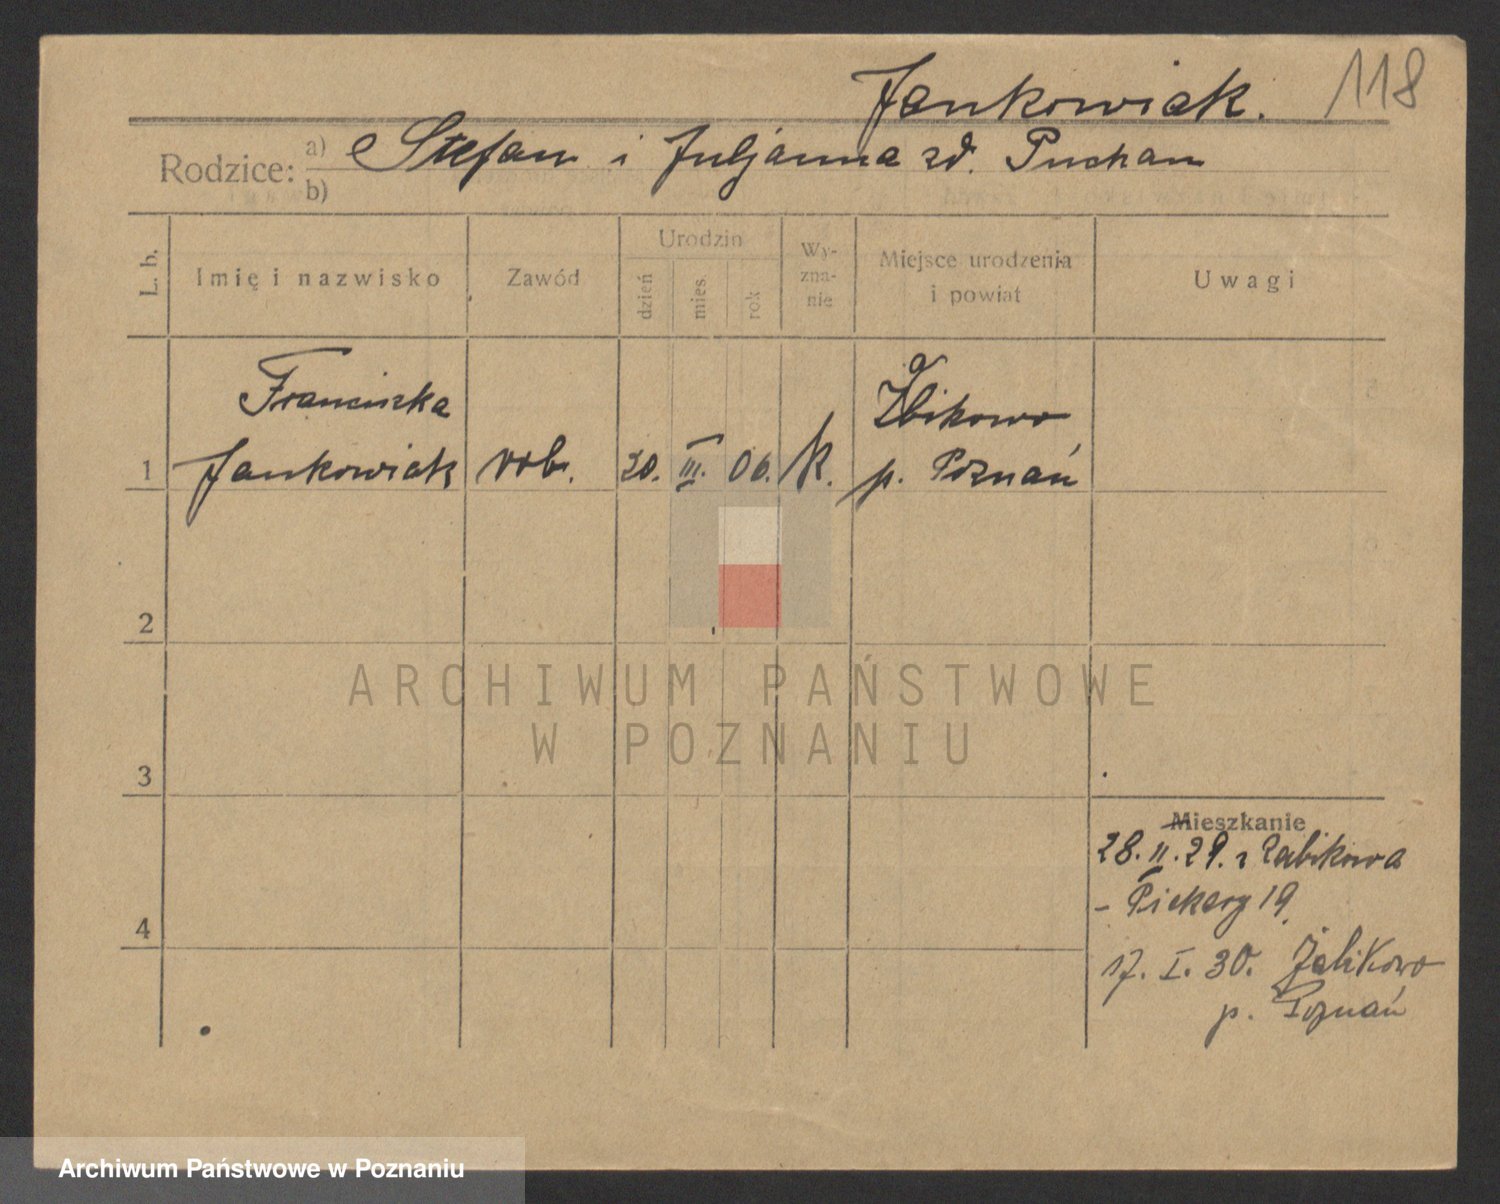 118
Jankowiak.
Rodzice: a) Stefan i Juljanna zd. Puchan
b)
L. b.
Imię i nazwisko
Zawód
Urodzin
dzień
mies.
rok
Wy-
zna-
nie
Miejsce urodzenia
i powiat
Uwagi
1
Franciszka
Jankowiak
rob.
20.
III.
06.
k.
Żbikowo
p. Poznań
2
3
4
ARCHIWUM PAŃSTWOWE
W POZNANIU
Mieszkanie
28.II.29. z Żabikowa
- Piekary 19
17. I. 30. Żabikowo
p. Poznań
Archiwum Państwowe w Poznaniu